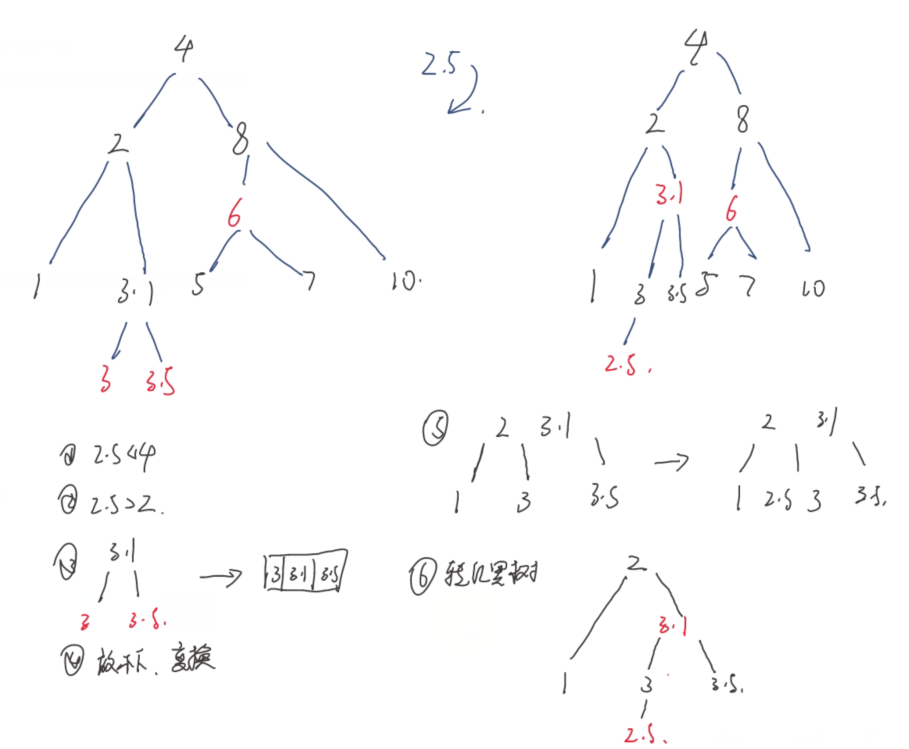 4
2 8
6
1 3.1 5 7 10.
3 3.5
2.5
4
2 8
3.1 6
1 3 3.5 5 7 10
2.5.
① 2.5<4
② 2.5>2.
③ 3.1
3 3.5.
3 3.1 3.5
④ 放不下、
⑤ 2 3.1
1 3 3.5
2 3.1
1 2.5 3 3.5.
⑥ 转化黑树
2
3.1
1 3 3.5.
2.5.